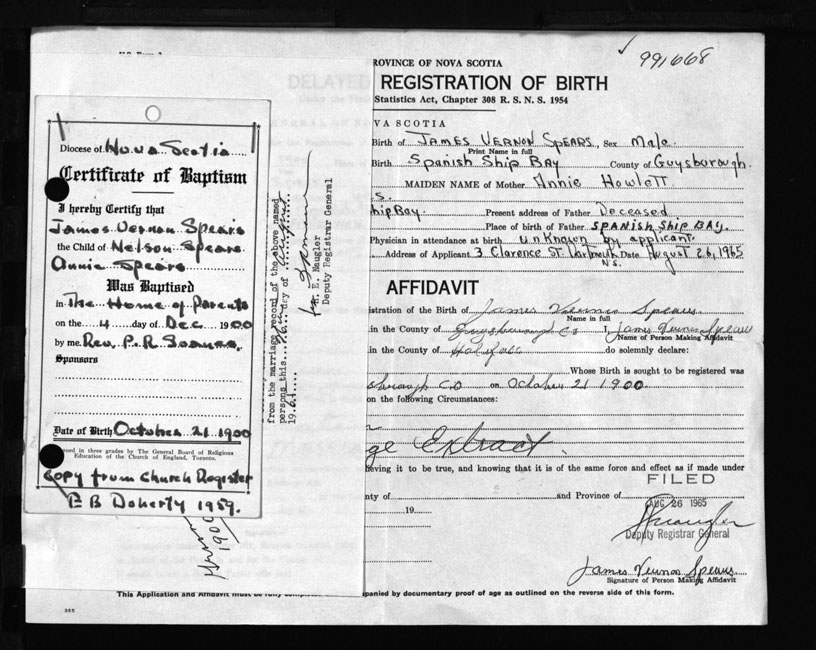 991668
PROVINCE OF NOVA SCOTIA
DELAYED REGISTRATION OF BIRTH
Statistics Act, Chapter 308 R. S. N. S. 1954
NOVA SCOTIA
Birth of JAMES VERNON SPEARS, Sex Male.
Print Name in full
Birth Spanish Ship BAY County of Guysborough.
MAIDEN NAME of Mother Annie Howlett
hip BAY. Present address of Father Deceased
Place of birth of Father SPANISH Ship BAY.
Physician in attendance at birth unknown by applicant.
Address of Applicant 3 Clarence St. Dartmouth Date August 26, 1965
N.S.
AFFIDAVIT
istration of the Birth of James Vernon Spears
Name in full
in the County of Guysborough Co I, James Vernon Spears
Name of Person Making Affidavit
in the County of Halifax do solemnly declare:
Whose Birth is sought to be registered was
sborough CO on October 21 1900.
on the following Circumstances:
ge Extract.
ieving it to be true, and knowing that it is of the same force and effect as if made under
FILED
nty of and Province of
AUG 26 1965
19
Deputy Registrar General
James Vernon Spears
Signature of Person Making Affidavit
This Application and Affidavit must be fully panied by documentary proof of age as outlined on the reverse side of this form.
Diocese of Nova Scotia
Certificate of Baptism
I hereby Certify that
James Vernon Spears
the Child of Nelson Spears
Annie Spears
Was Baptised
in The Home of Parents
on the 4 day of Dec. 1900
by me Rev. P. R.
Sponsors
Date of Birth October 21 1900
Issued in three grades by The General Board of Religious
Education of the Church of England, Toronto.
Copy from Church Register
E B Doherty 1959.
from the marriage record of the above named
persons this day of August
19 65
E. Naugler
Deputy Registrar General
1900